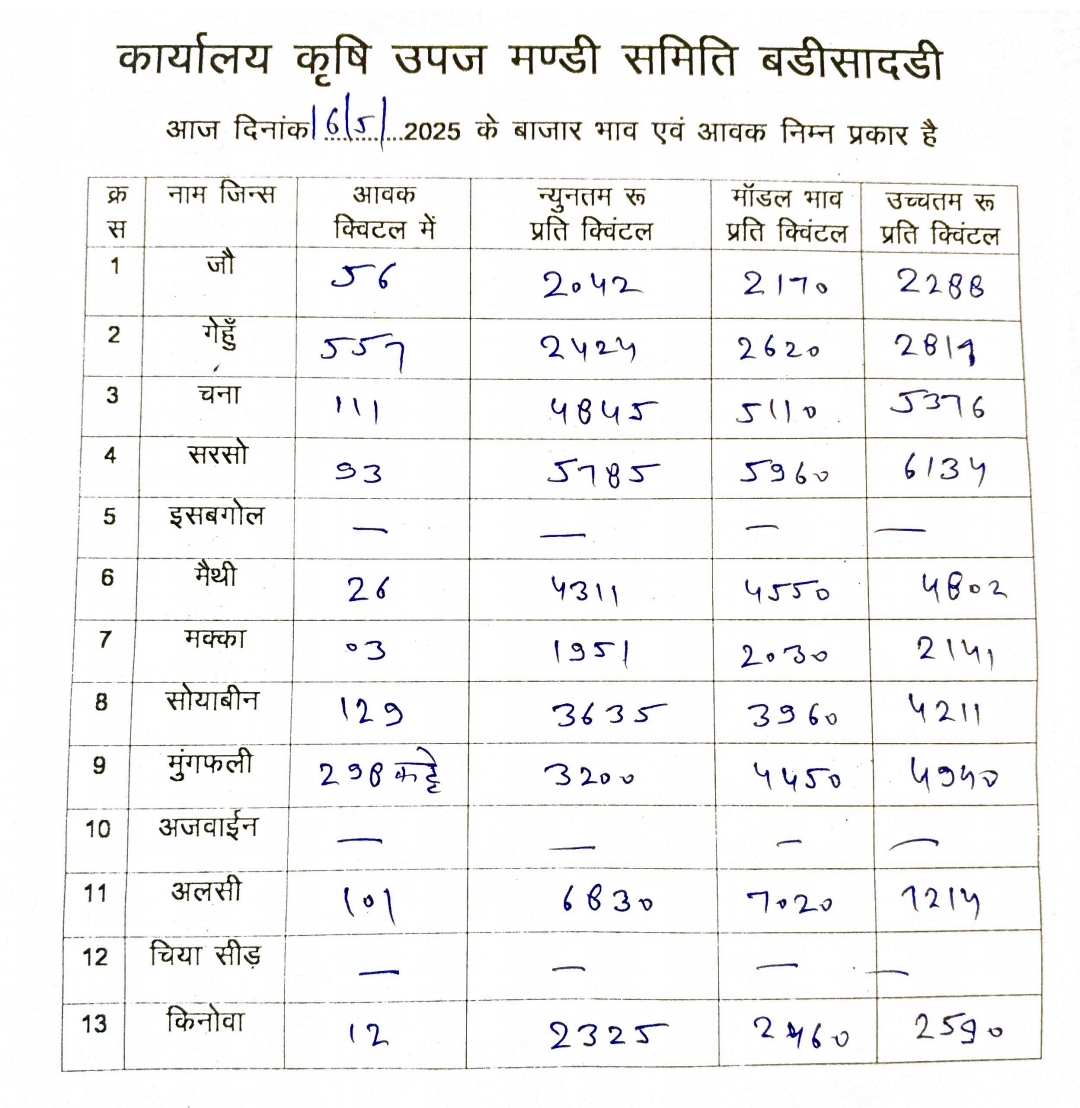 कार्यालय कृषि उपज मण्डी समिति बडीसादडी
आज दिनांक 16/5/ 2025 के बाजार भाव एवं आवक निम्न प्रकार है
क्र स नाम जिन्स आवक क्विटल में न्युनतम रू प्रति क्विंटल मॉडल भाव प्रति क्विंटल उच्चतम रू प्रति क्विंटल
1 जौ 56 2042 2170 2288
2 गेहुँ 557 2424 2620 2817
3 चना 111 4845 5110 5376
4 सरसो 93 5785 5960 6134
5 इसबगोल — — — —
6 मैथी 26 4311 4550 4802
7 मक्का 03 1951 2030 2141
8 सोयाबीन 129 3635 3960 4211
9 मुंगफली 298 कट्टे 3200 4450 4940
10 अजवाईन — — — —
11 अलसी 101 6830 7020 7214
12 चिया सीड़ — — — —
13 किनोवा 12 2325 2460 2590